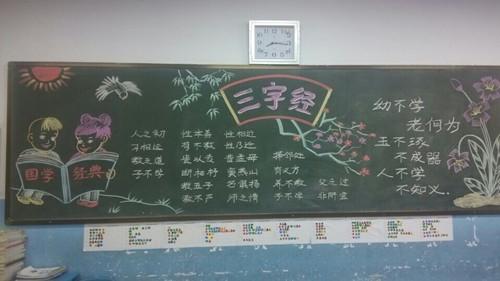 三字经
国学 经典
人之初 性本善 性相近
习相远 苟不教 性乃迁
教之道 贵以专 昔孟母 择邻处
子不学 断机杼 窦燕山 有义方
教五子 名俱扬 养不教 父之过
教不严 师之惰 子不学 非所宜
幼不学
老何为
玉不琢
不成器
人不学
不知义